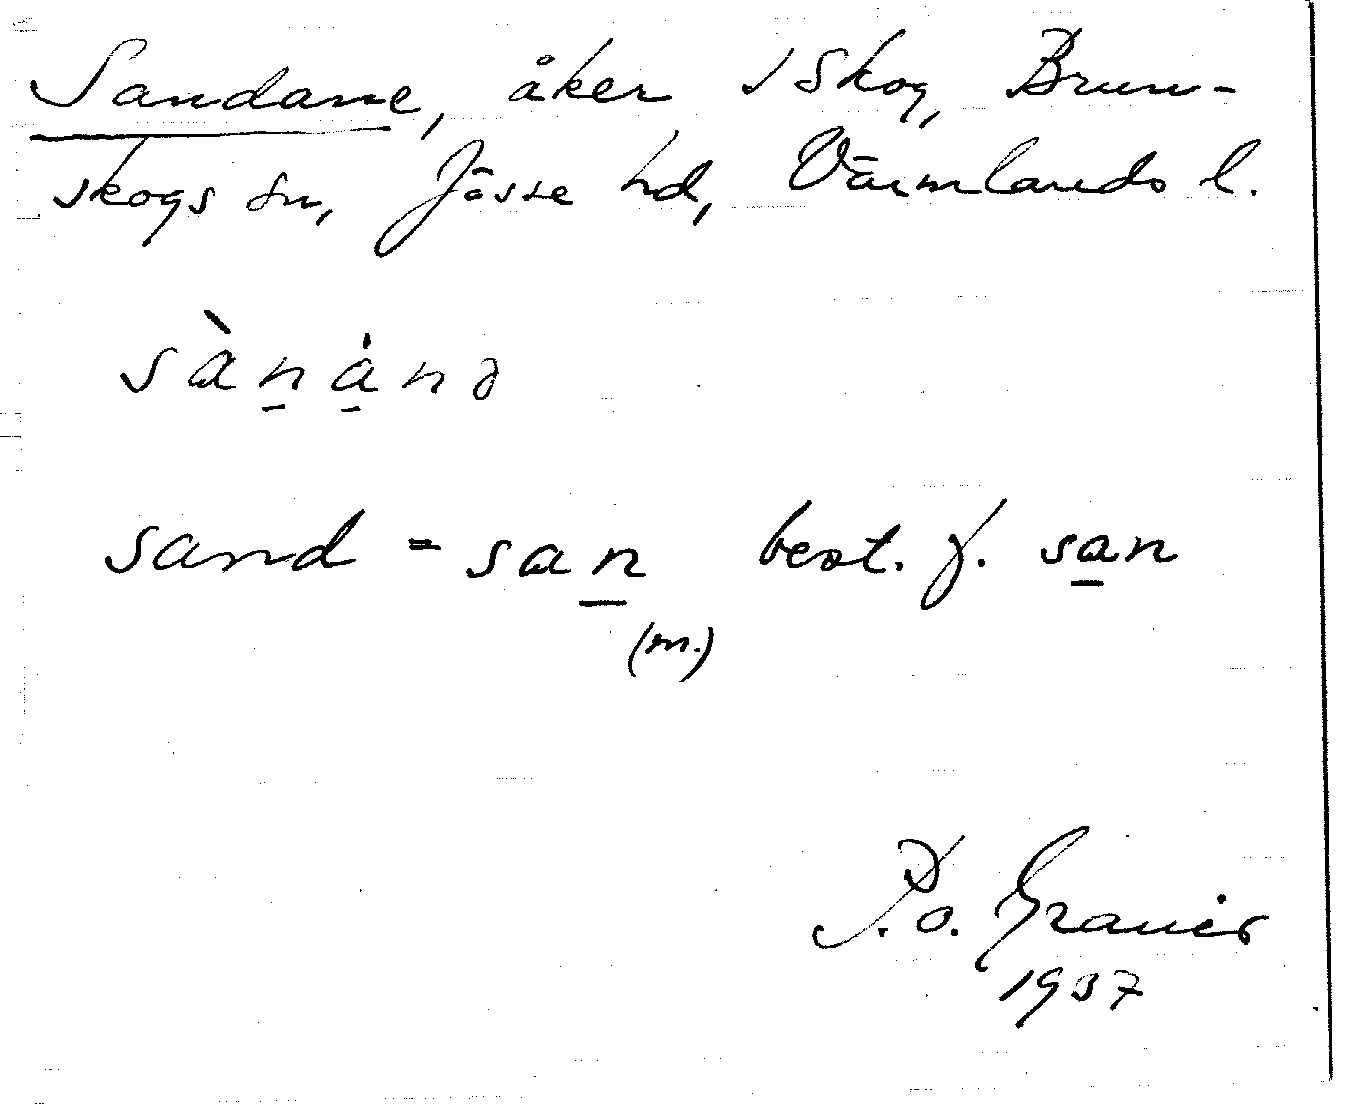 Sandane, åker i Skog, Brun-
skogs sn, Jösse hd, Värmlands l.
sàṉȧ̱nə
sand = saṉ best. f. sa̱n
(m.)
P. o.
1937